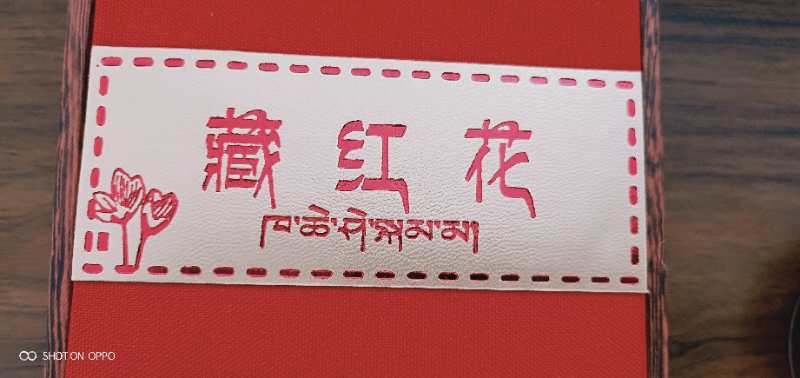 藏红花
ཁ་ཆེ་ཤ་སྐམ་མ།
SHOT ON OPPO